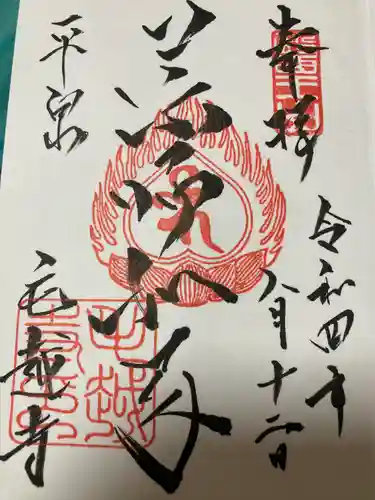 奉拝
令和四年
八月十二日
薬師如来
平泉
毛越寺